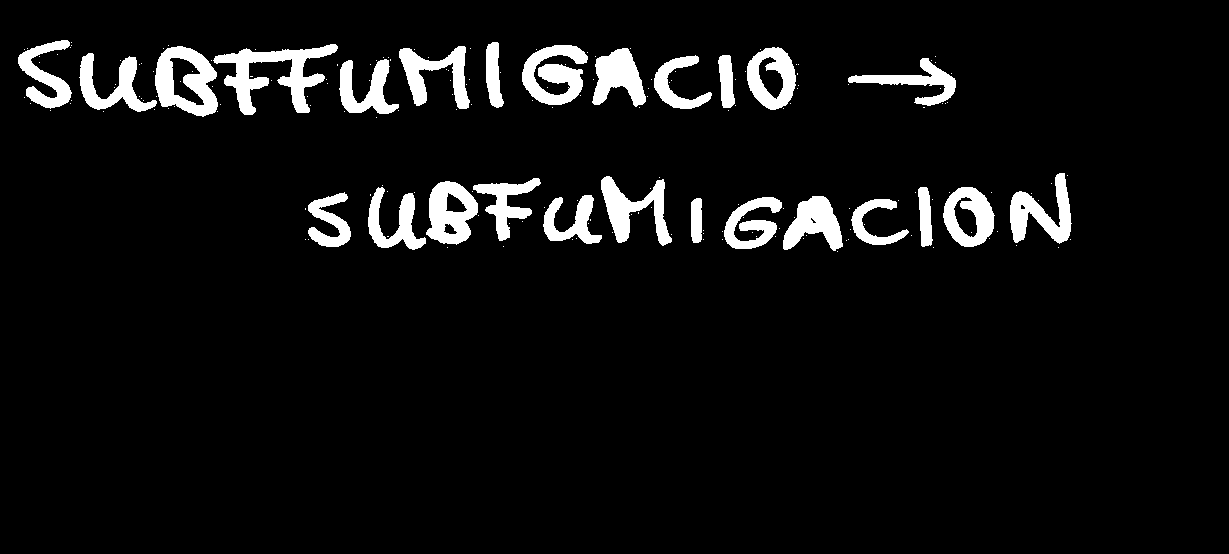 SUBFFUMIGACIO →
SUBFUMIGACION